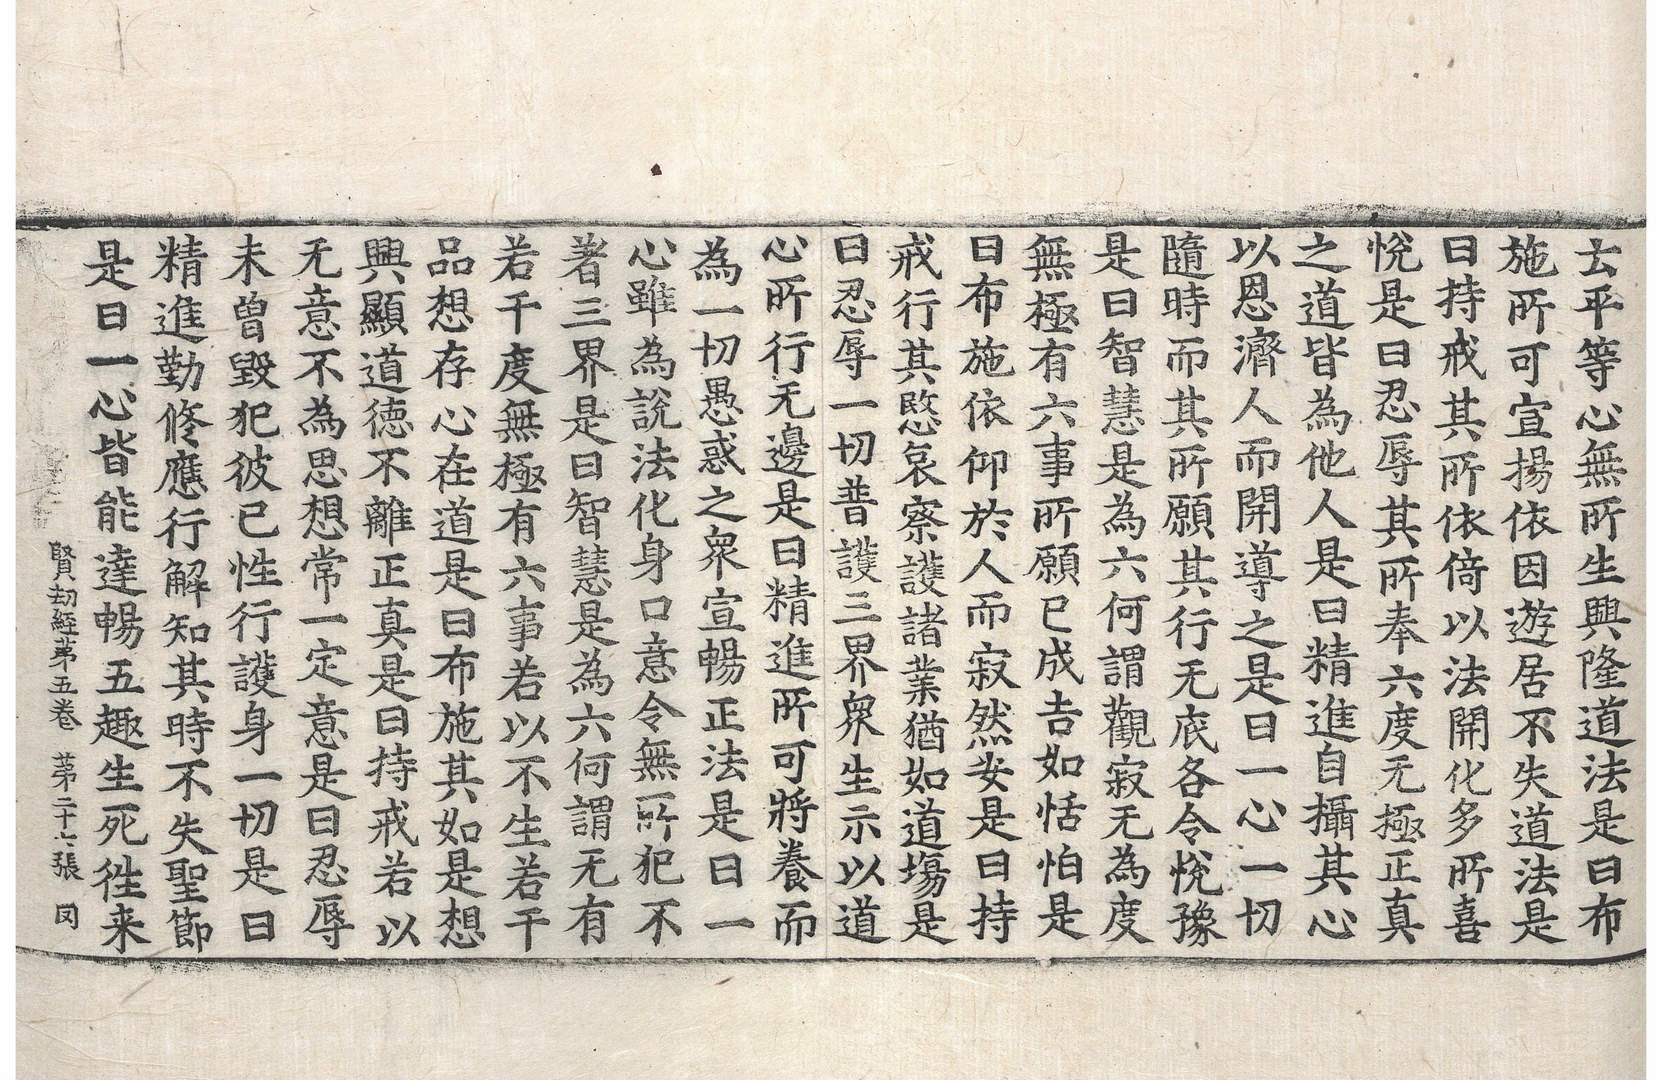 去平等心無所生興隆道法是曰布
施所可宣揚依因遊居不失道法是
曰持戒其所依倚以法開化多所喜
悅是曰忍辱其所奉六度无極正真
之道皆為他人是曰精進自攝其心
以恩濟人而開導之是曰一心一切
隨時而其所願其行无底各令悅豫
是曰智慧是為六何謂觀寂无為度
無極有六事所願已成吉如恬怕是
曰布施依仰於人而寂然安是曰持
戒行其愍哀察護諸業猶如道塲是
曰忍辱一切普護三界衆生示以道
心所行无邊是曰精進所可將養而
為一切愚惑之衆宣暢正法是曰一
心雖為說法化身口意令無所犯不
著三界是曰智慧是為六何謂无有
若干度無極有六事若以不生若干
品想存心在道是曰布施其如是想
興顯道德不離正真是曰持戒若以
无意不為思想常一定意是曰忍辱
未曾毀犯彼已性行護身一切是曰
精進勤修應行解知其時不失聖節
是曰一心皆能達暢五趣生死徃来
賢劫經第五卷 第二十七張 罔